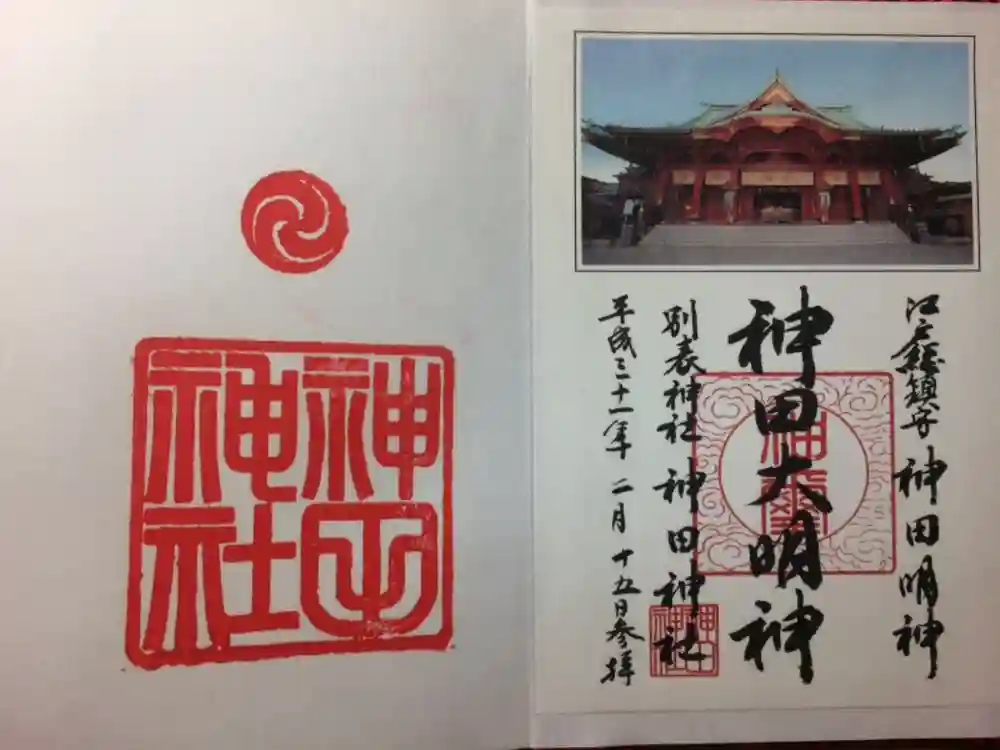 江戸総鎮守 神田明神
神田大明神
別表神社 神田神社
平成三十一年 二月 十五日参拝
神田
神社
神田
神社